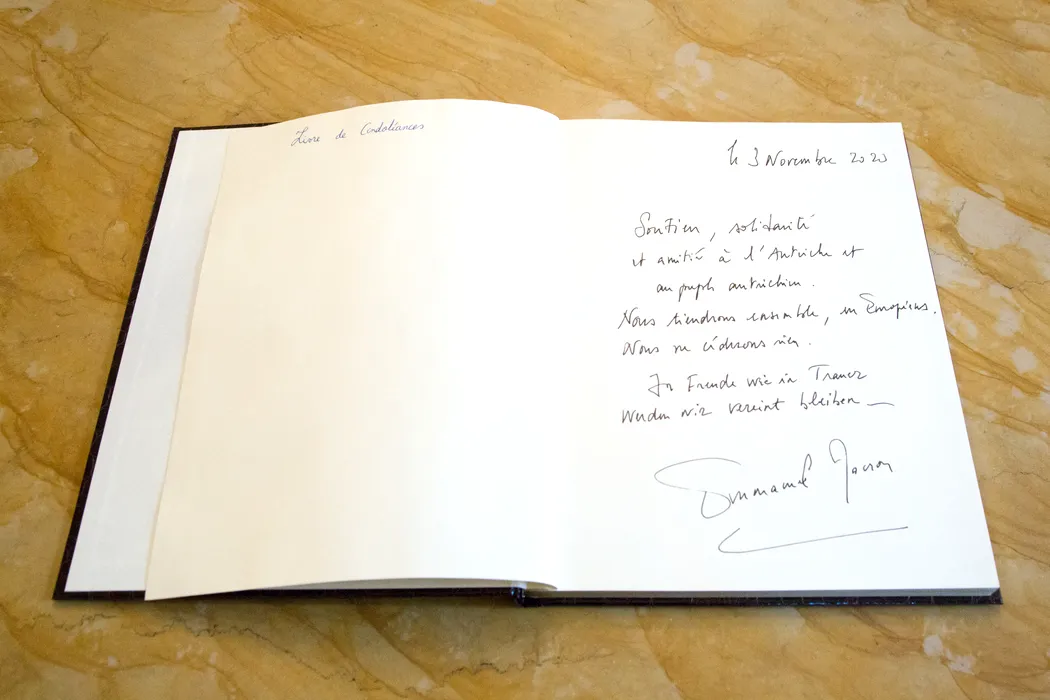 Livre de Condoléances
le 3 Novembre 2020
Soutien, solidarité
et amitié à l'Autriche et
au peuple autrichien.
Nous tiendrons ensemble, en Européens.
Nous ne céderons rien.
In Freude wie in Trauer
werden wir vereint bleiben —
Emmanuel Macron